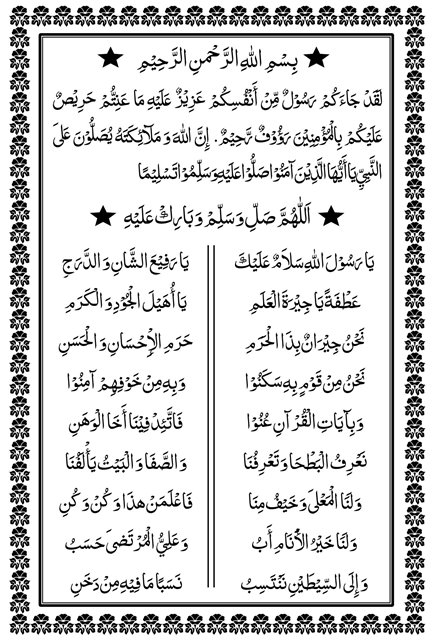 بِسْمِ اللهِ الرَّحْمنِ الرَّحِيْمِ
لَقَدْ جَاءَكُمْ رَسُوْلٌ مِّنْ أَنْفُسِكُمْ عَزِيْزٌ عَلَيْهِ مَا عَنِتُّمْ حَرِيْصٌ
عَلَيْكُمْ بِالْمُؤْمِنِيْنَ رَؤُوْفٌ رَّحِيْمٌ . إِنَّ اللهَ وَمَلَآئِكَتَهُ يُصَلُّوْنَ عَلَى
النَّبِيِّ يَا أَيُّهَا الَّذِيْنَ آمَنُوْا صَلُّوْا عَلَيْهِ وَسَلِّمُوْا تَسْلِيْمًا
اَللّٰهُمَّ صَلِّ وَسَلِّمْ وَبَارِكْ عَلَيْهِ
يَا رَسُوْلَ اللهِ سَلَامٌ عَلَيْكَ يَا رَفِيْعَ الشَّانِ وَالدَّرَجِ
عَطْفَةً يَا جِيْرَةَ الْعَلَمِ يَا أُهَيْلَ الْجُوْدِ وَالْكَرَمِ
نَحْنُ جِيْرَانٌ بِذَا الْحَرَمِ حَرَمِ الْإِحْسَانِ وَالْحَسَنِ
نَحْنُ مِنْ قَوْمٍ بِهِ سَكَنُوْا وَبِهِ مِنْ خَوْفِهِمْ آمِنُوْا
وَبِآيَاتِ الْقُرْآنِ عُنُوْا فَاتَّئِدْ فِيْنَا أَخَا الْوَهَنِ
نَعْرِفُ الْبَطْحَا وَتَعْرِفُنَا وَالصَّفَا وَالْبَيْتُ يَأْلَفُنَا
وَلَنَا الْمَعْلَى وَخَيْفُ مِنَا فَاعْلَمَنْ هذَا وَكُنْ وَكُنِ
وَلَنَا خَيْرُ الْأَنَامِ أَبُ وَعَلِيُّ الْمُرْتَضَى حَسَبُ
وَإِلَى السِّبْطَيْنِ نَنْتَسِبُ نَسَبًا مَا فِيْهِ مِنْ دَخَنِ